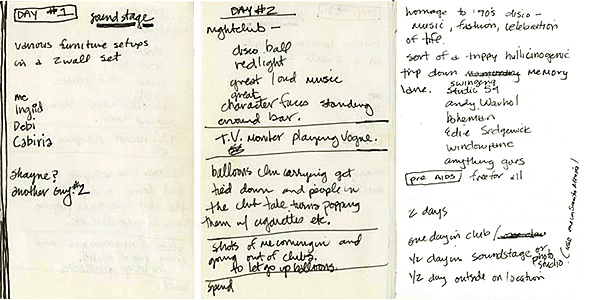 DAY #1
soundstage
various furniture setups
in a 2 wall set
me
Ingrid
Debi
Cabiria
Shayne?
another guy #2
DAY #2
nightclub -
disco ball
redlight
great loud music
great
character faces standing
around bar.
T.V. monitor playing Vogue.
balloons I'm carrying get
tied down and people in
the club take turns popping
them w/ cigarettes etc.
shots of me coming in and
going out of clubs.
to let go up balloons.
spend
homage to '70's disco -
music, fashion, celebration
of life.
sort of a trippy hullicinogenic
trip down memory
lane. swinging
studio 54
andy Warhol
bohemian
Edie Sedgewick
windowpane
anything goes
pre AIDS / free for all
2 days
one day in club /
1/2 day in soundstage or photo studio
1/2 day outside on location